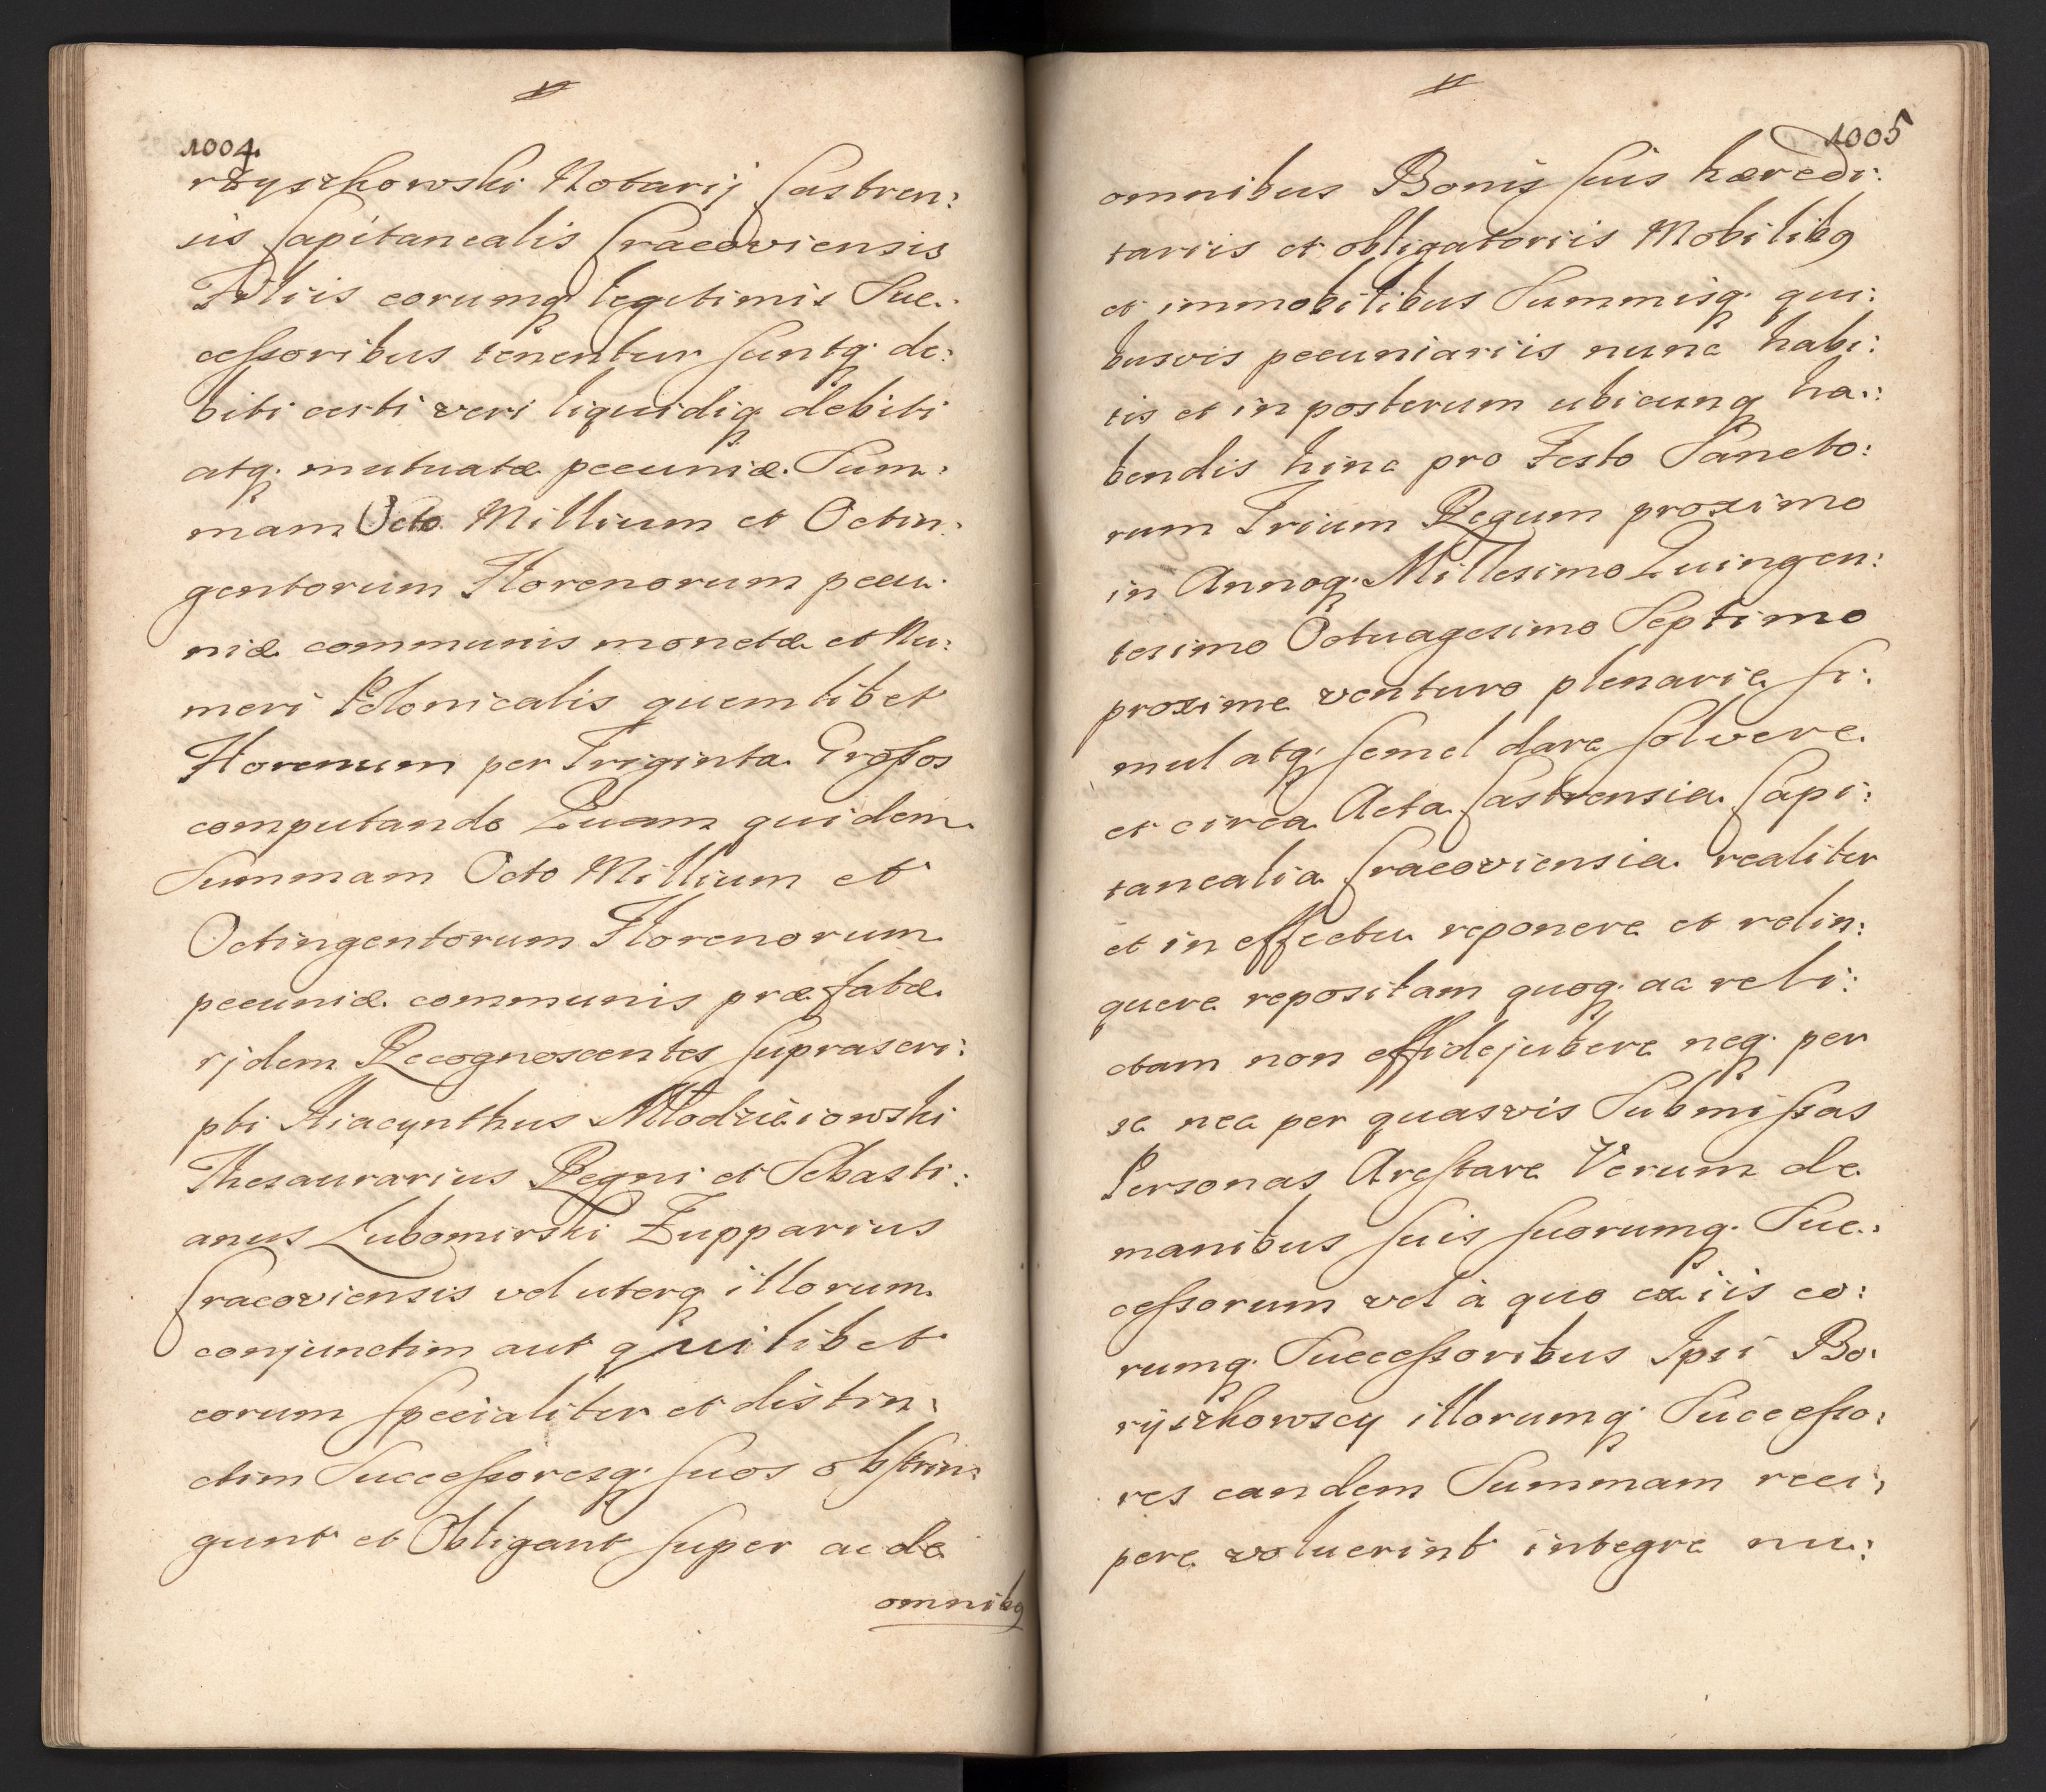 1004.
ryszkowski Notarij Castren:
sis Capitanealis Cracoviensis
Filiis eorumq legitimis Suc:
cessoribus tenentur suntq. de:
biti certi veri liquidiq debiti
atq. mutuatæ pecuniæ. Sum:
mam Octo Millium et Octin:
gentorum Florenorum pecu:
niæ communis monetæ et Nu:
meri Polonicalis quemlibet
Florenum per Triginta Grossos
computando Quam quidem
Summam Octo Millium et
Octingentorum Florenorum
pecuniæ communis præfatæ
ijdem Recognoscentes suprascri:
pti Hiacynthus Młodzieiowski
Thesaurarius Regni et Sebasti:
anus Lubomirski Zupparius
Cracoviensis vel uterq illorum
conjunctim aut quilibet
eorum specialiter et distin:
ctim Successoresq. suos obstrin:
gunt et Obligant super ac de
omnibq
1005
omnibus Bonis suis hæredi:
tariis et obligatoriis Mobilibq
et immobilibus Summisq. qui:
busvis pecuniariis nunc habi:
tis et in posterum ubicunq ha:
bendis hinc pro Festo Sancto:
rum Trium Regum proximo
in Annoq. Millesimo Quingen:
tesimo Octuagesimo Septimo
proxime venturo plenarie si:
mul atq. semel dare solvere
et circa Acta Castrensia Capi:
tanealia Cracoviensia realiter
et in effectu reponere et relin:
quere repositam quoq. ac reli:
ctam non effidejubere neq. per
se nec per quasvis Submissas
Personas Arestare Verum de
manibus suis suorumq. Suc:
cessorum vel à quo ex iis eo:
rumq. Successoribus Ipsi Bo:
ryszkowscy illorumq. Successo:
res eandem Summam reci:
pere voluerint integre nu: